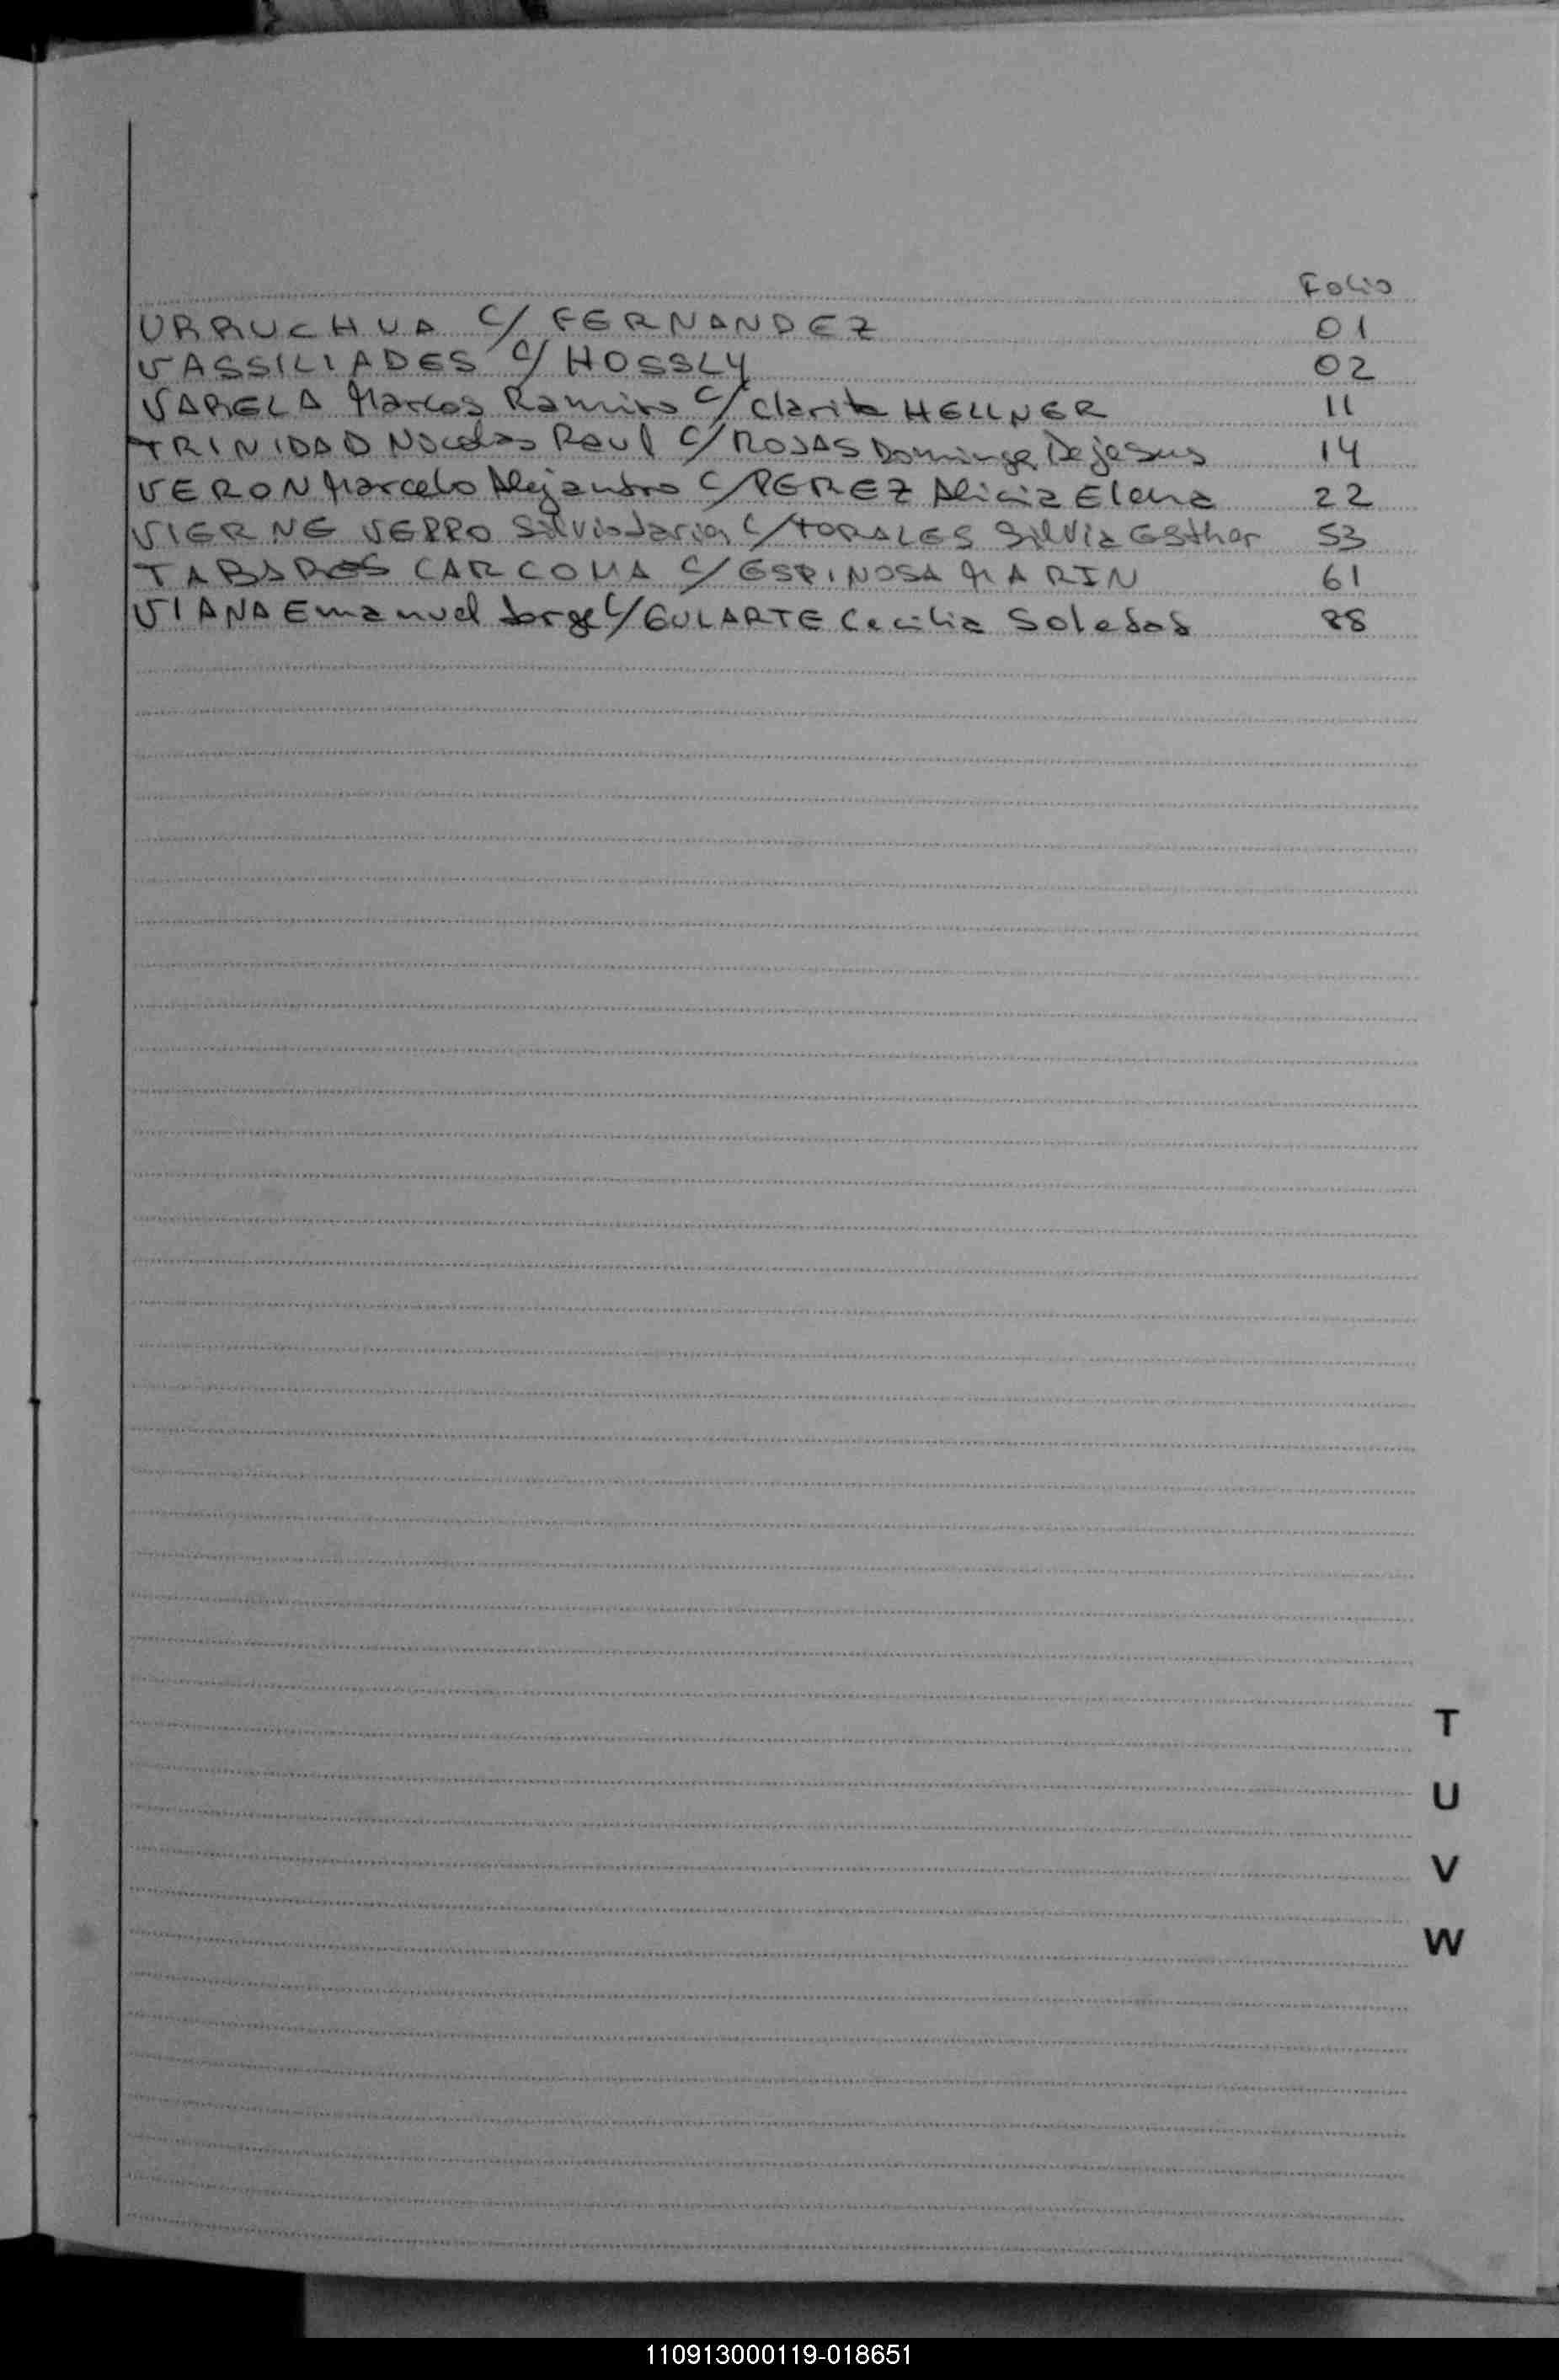 Folio
URRUCHUA C/ FERNANDEZ 01
VASSILIADES C/ HOSSLY 02
VARELA Marcos Ramiro C/ Clarita HELLNER 11
TRINIDAD Nocolas Raul C/ ROJAS Dominga De jesus 14
VERON Marcelo Alejandro C/ PEREZ Alicia Elena 22
VIERNE VERRO Silvio C/ TORALES Silvia Esther 53
TABARES CARCOMA C/ ESPINOSA MARIN 61
VIANA Emanuel Jorge C/ GULARTE Cecilia Soledad 88
T
U
V
W
110913000119-018651